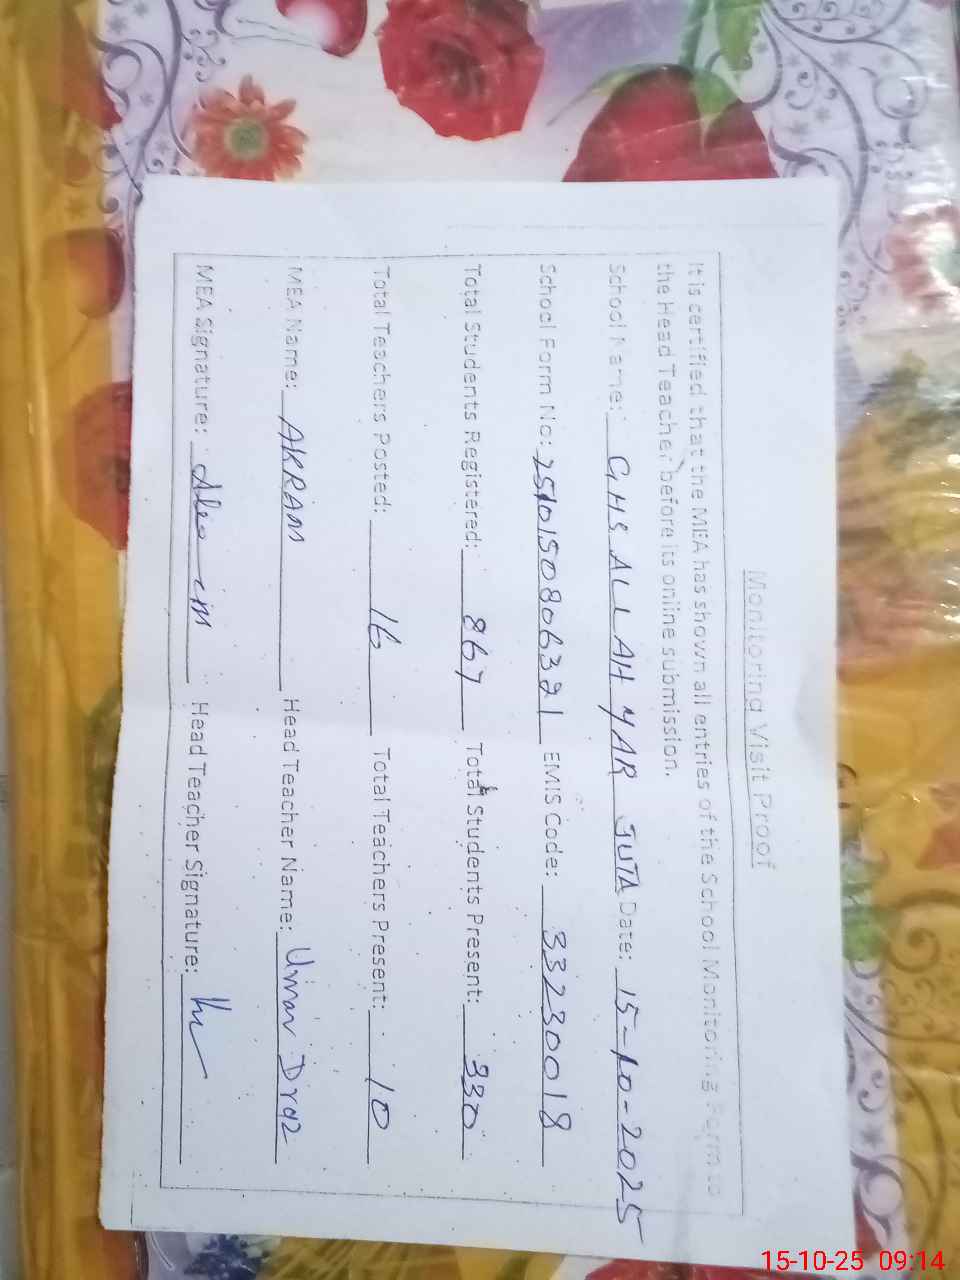 Monitoring Visit Proof
It is certified that the MEA has shown all entries of the School Monitoring Form to
the Head Teacher before its online submission.
School Name: GHS ALLAH YAR JUTA Date: 15-10-2025
School Form No: 2510150806321 EMIS Code: 33230018
Total Students Registered: 867 Total Students Present: 330
Total Teachers Posted: 16 Total Teachers Present: 10
MEA Name: AKRAM Head Teacher Name: Umar Draz
MEA Signature: Head Teacher Signature:
15-10-25 09:14